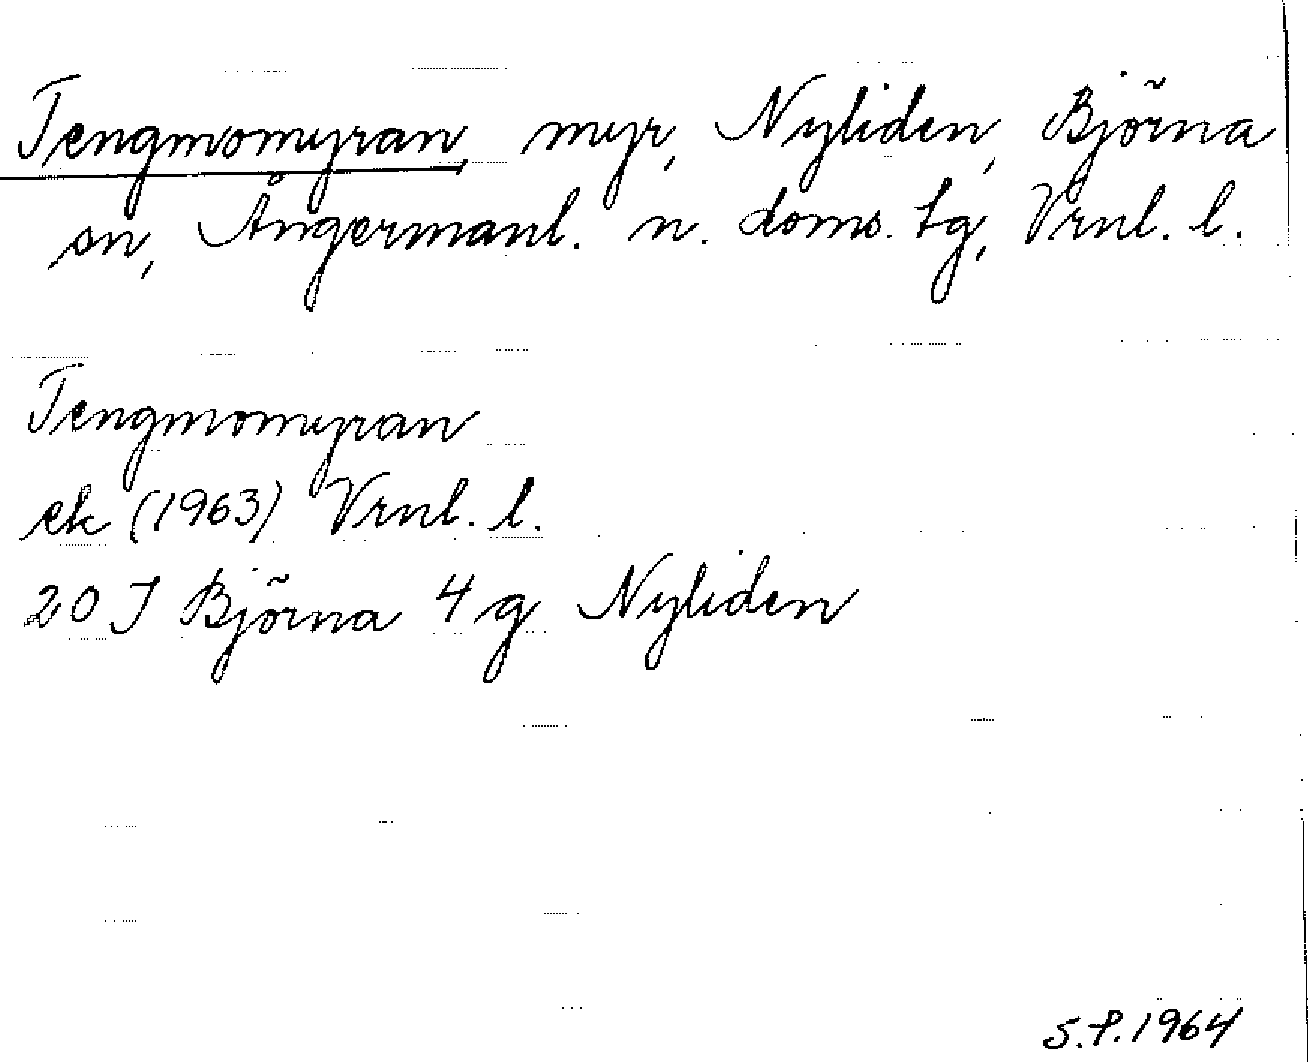 Tengmomyran, myr, Nyliden, Björna
sn, Ångermanl. n. doms. tg, Vrnl. l.
Tengmomyran
ek (1963) Vrnl. l.
20 J Björna 4 g Nyliden
S.P. 1964